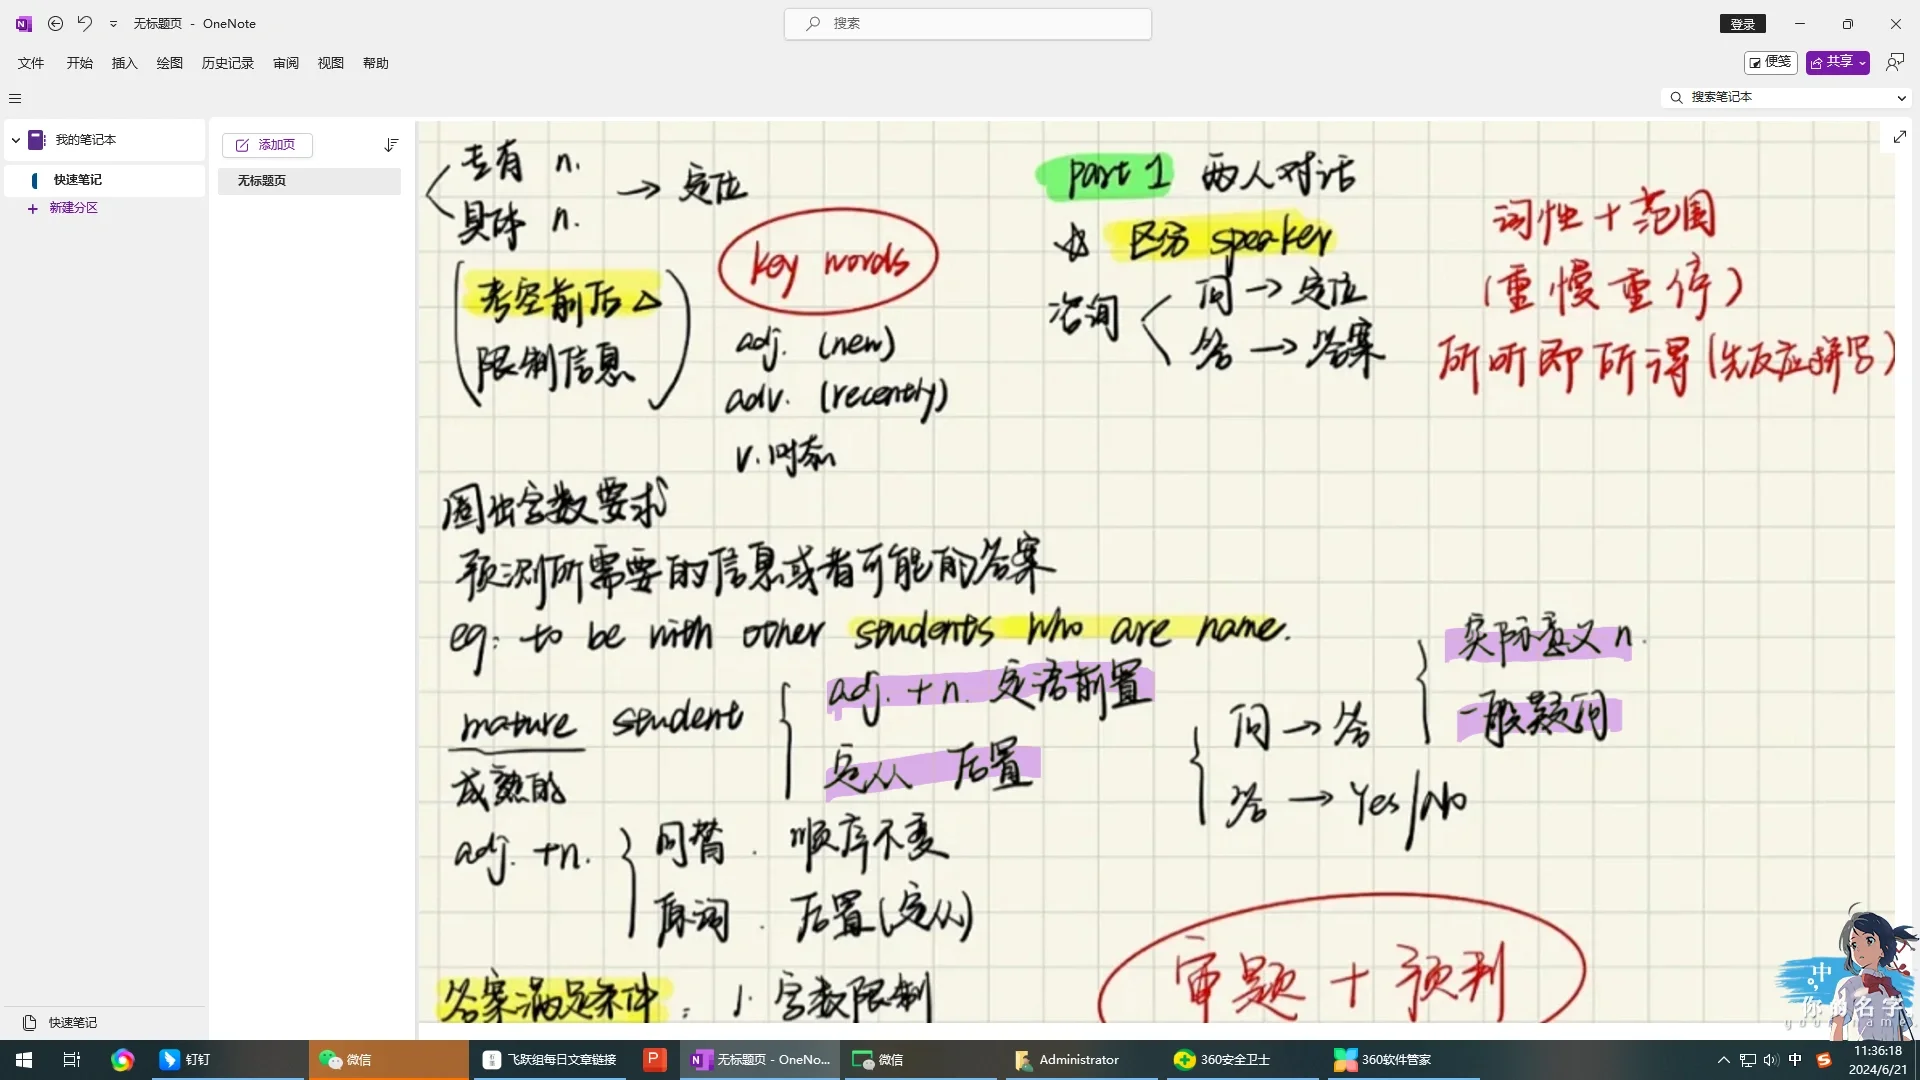 无标题页 - OneNote
搜索
登录
文件 开始 插入 绘图 历史记录 审阅 视图 帮助
便笺
共享
搜索笔记本
我的笔记本
快速笔记
新建分区
添加页
无标题页
专有 n.
具体 n.
→ 定位
考空前后△
限制信息
key words
adj. (new)
adv. (recently)
v.时态
Part 1 两人对话
区分 speaker
咨询
问 → 定位
答 → 答案
词性 + 范围
(重慢重停)
所听即所得(先反应拼写)
圈出字数要求
预测所需要的信息或者可能的答案
eg: to be with other students who are name.
mature student
成熟的
adj. + n. 定语前置
定从 后置
问 → 答
实际意义 n.
一般疑问
答 → Yes/No
adj. +n.
同替 . 顺序不变
原词 . 后置(定从)
答案满足条件: 1. 字数限制
审题 + 预判
快速笔记
中
你的名字。
your name.
钉钉
微信
飞跃组每日文章链接
无标题页 - OneNo...
微信
Administrator
360安全卫士
360软件管家
中
11:36:18
2024/6/21